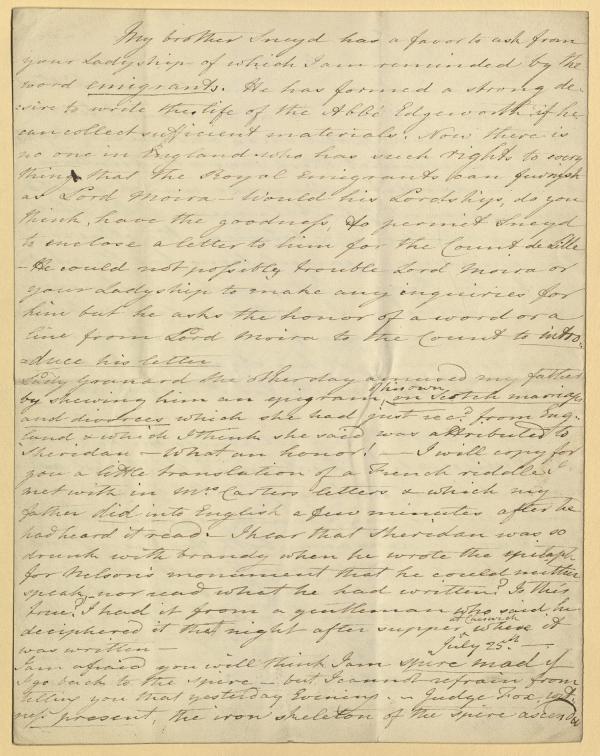 My brother Sneyd has a favor to ask from
your Ladyship of which I am reminded by the
word emigrants. He has formed a strong de-
-sire to write the life of the Abbé Edgeworth if he
can collect sufficient materials. Now there is
no one in England who has such rights to every
thing that the Royal Emigrants can furnish
as Lord Moira – Would his Lordship, do you
think, have the goodness, to permit Sneyd
to enclose a letter to him for the Count de Lille
– He could not possibly trouble Lord Moira or
your Ladyship to make any inquiries for
him but he asks the honor of a word or a
line from Lord Moira to the Count to intro-
-duce his letter
Lady Granard the other day amused my father
by shewing him an epigram, his own on Scotch marriages
and divorces which she had just recd. from Eng-
land & which I think she said was attributed to
Sheridan – What an honor! – I will copy for
you a little translation of a French riddle I
met with in Mrs Carters letters & which my
father did into English a few minutes after he
had heard it read. I hear that Sheridan was so
drunk with brandy when he wrote the epitaph
for Nelson's monument that he could neither
speak nor read what he had written? Is this
true? I had it from a gentleman who said he
deciphered it the night after supper at where it
was written – July 25th –
I am afraid you will think I am spire mad if
I go back to the spire – but I cannot refrain from
telling you that yesterday Evening – Judge Fox, wit-
ness present, the iron skeleton of the spire ascended